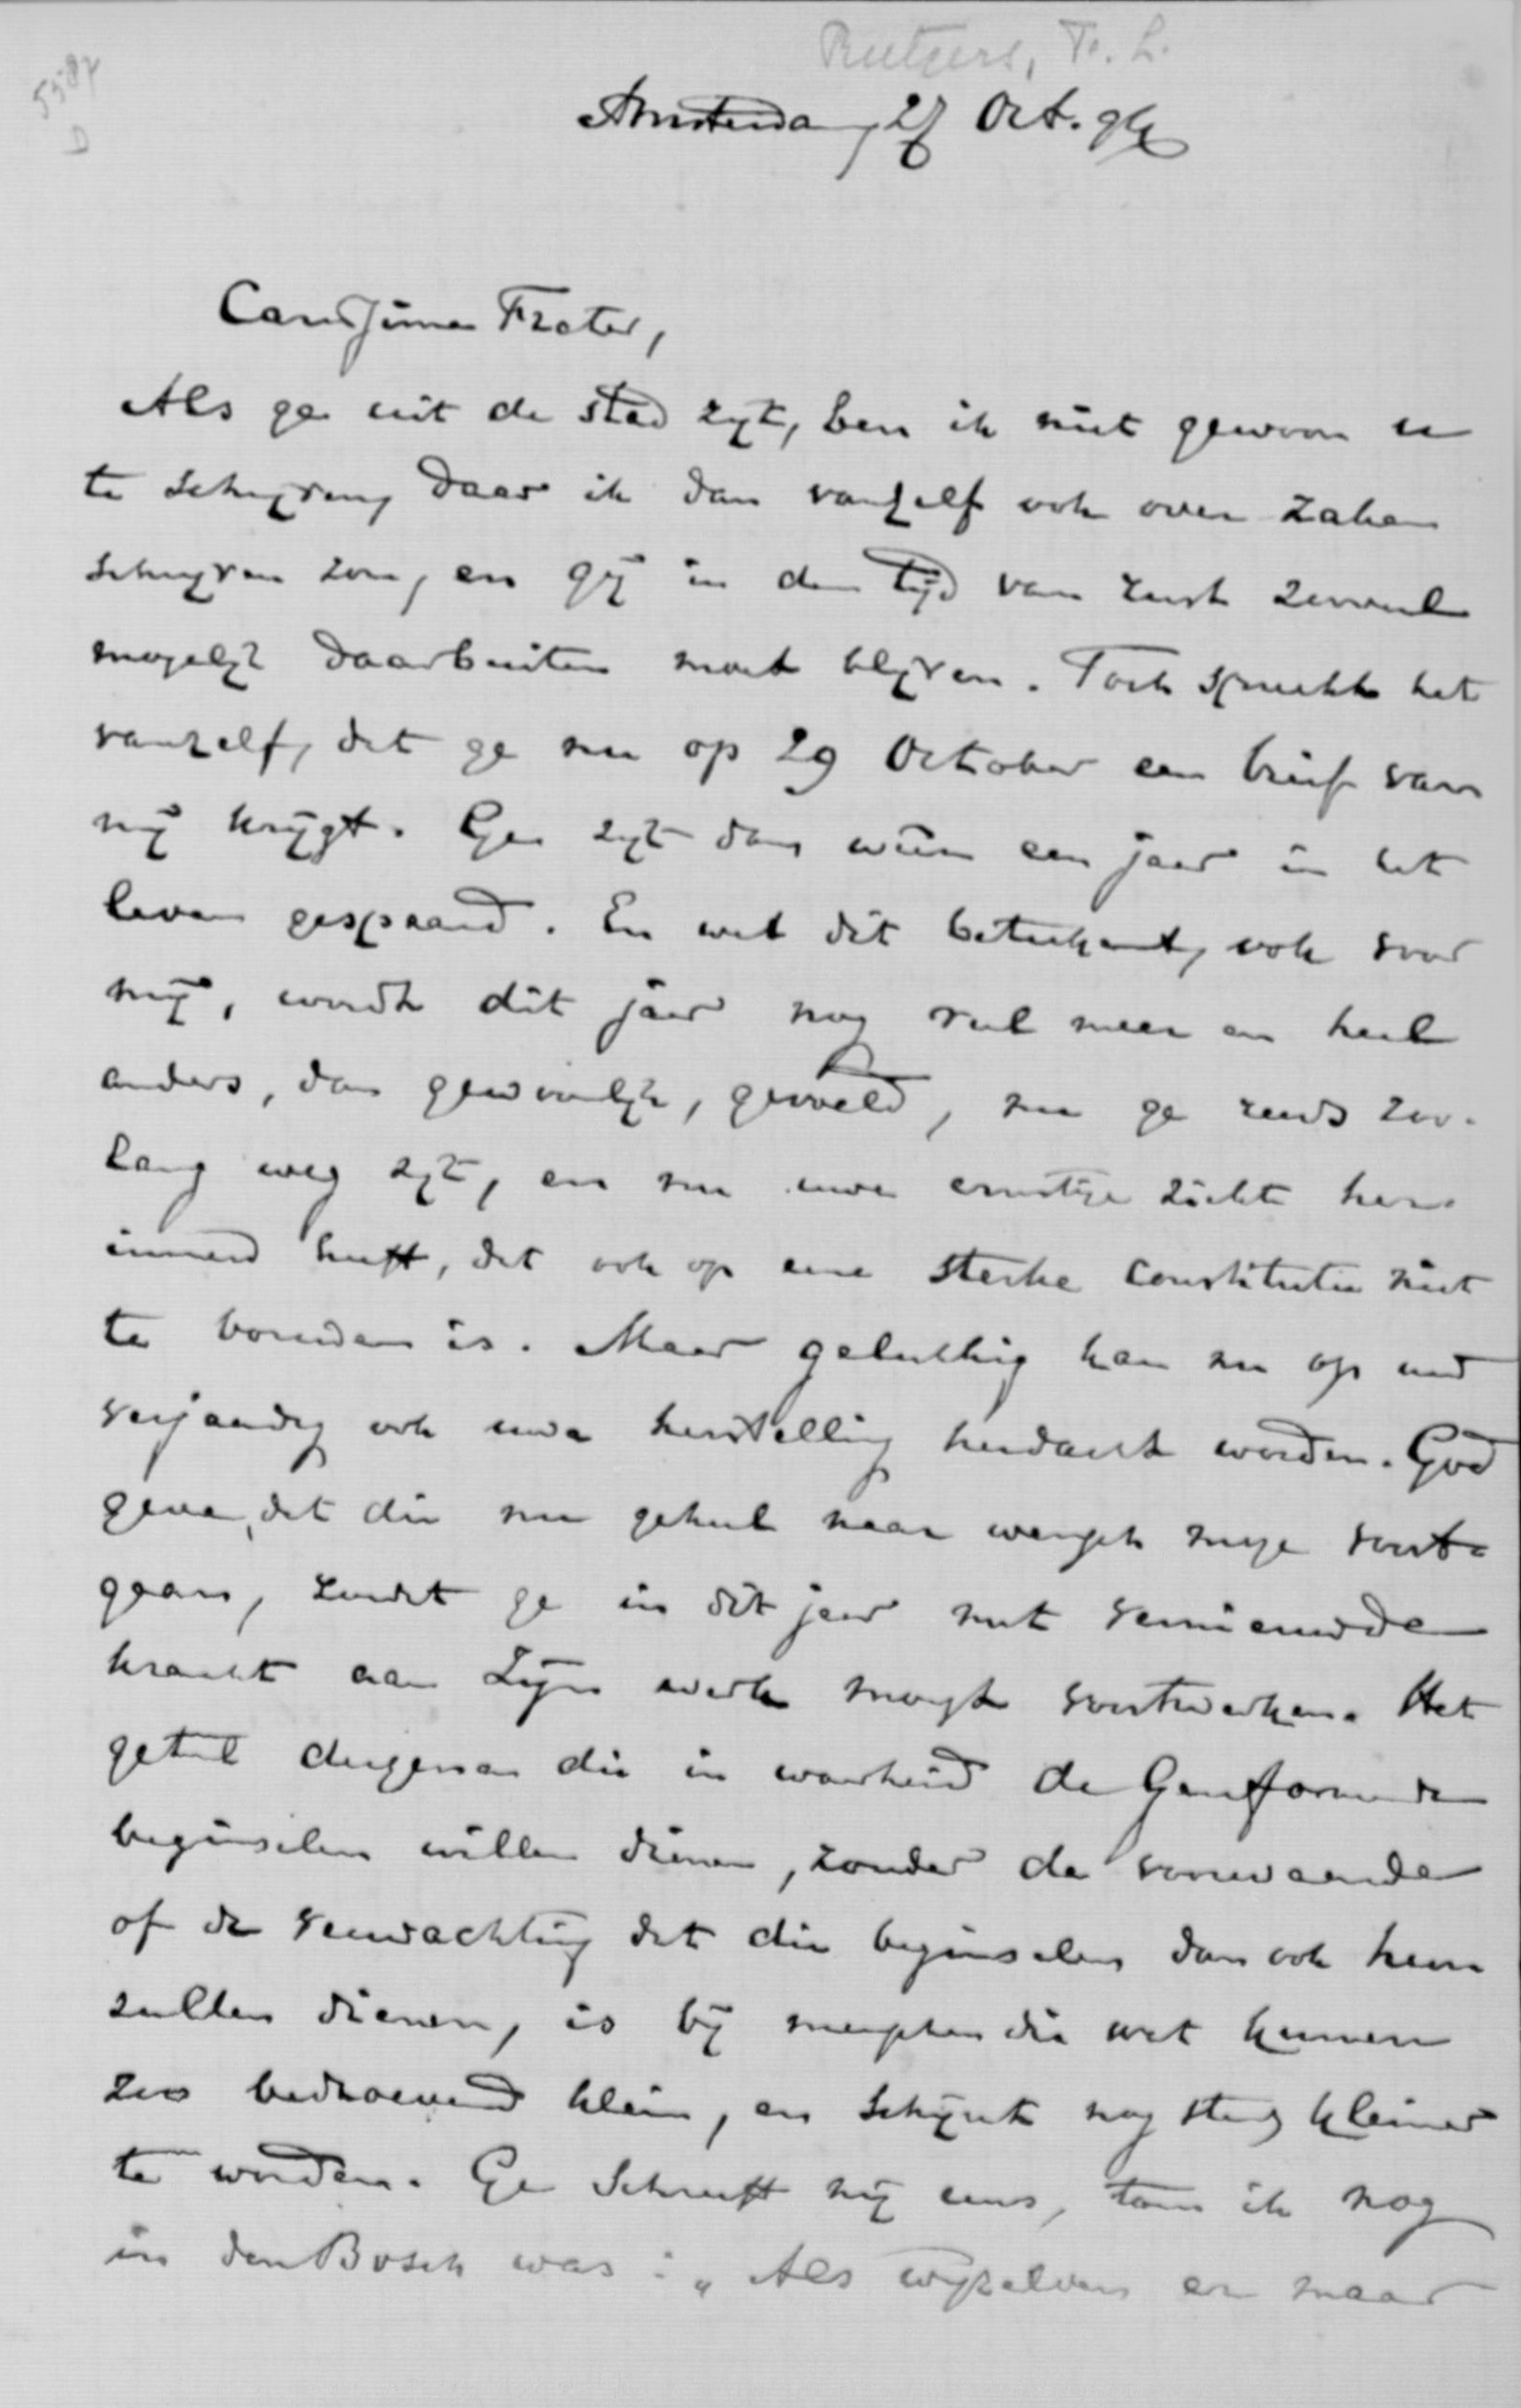 Rutgers, F. L.
5587
D
Amsterdam, 27 Oct. 94
Carissime Frater,
Als ge uit de stad zyt, ben ik niet gewoon u
te schryven, daar ik dan vanzelf ook over zaken
schryven zou, en gij in den tijd van rust zooveel
mogelyk daarbuiten moet blyven. Toch spreekt het
vanzelf, dat ge nu op 29 October een brief van
mij krijgt. Ge zyt dan weêr een jaar in het
leven gespaard. En wat dit beteekent, ook voor
mij, wordt dit jaar nog veel meer en heel
anders, dan gewoonlyk, gevoeld, nu ge reeds zoo-
lang weg zyt, en nu uwe ernstige ziekte her-
innerd heeft, dat ook op eene sterke constitutie niet
te bouwen is. Maar gelukkig kan nu op uw
verjaardag ook uwe herstelling herdacht worden. God
geve, dat die nu geheel naar wensch moge voort-
gaan, zoodat ge in dit jaar met vernieuwde
kracht aan Zijn werk moogt voortwerken. Het
getal dergenen die in waarheid de Gereformeerde
beginselen willen dienen, zonder de voorwaarde
of de verwachting dat die beginselen dan ook hen
zullen dienen, is bij menschen die wat kunnen
zoo bedroevend klein, en schijnt nog steeds kleiner
te worden. Ge schreeft mij eens, toen ik nog
in den Bosch was: „Als wijzelven er maar